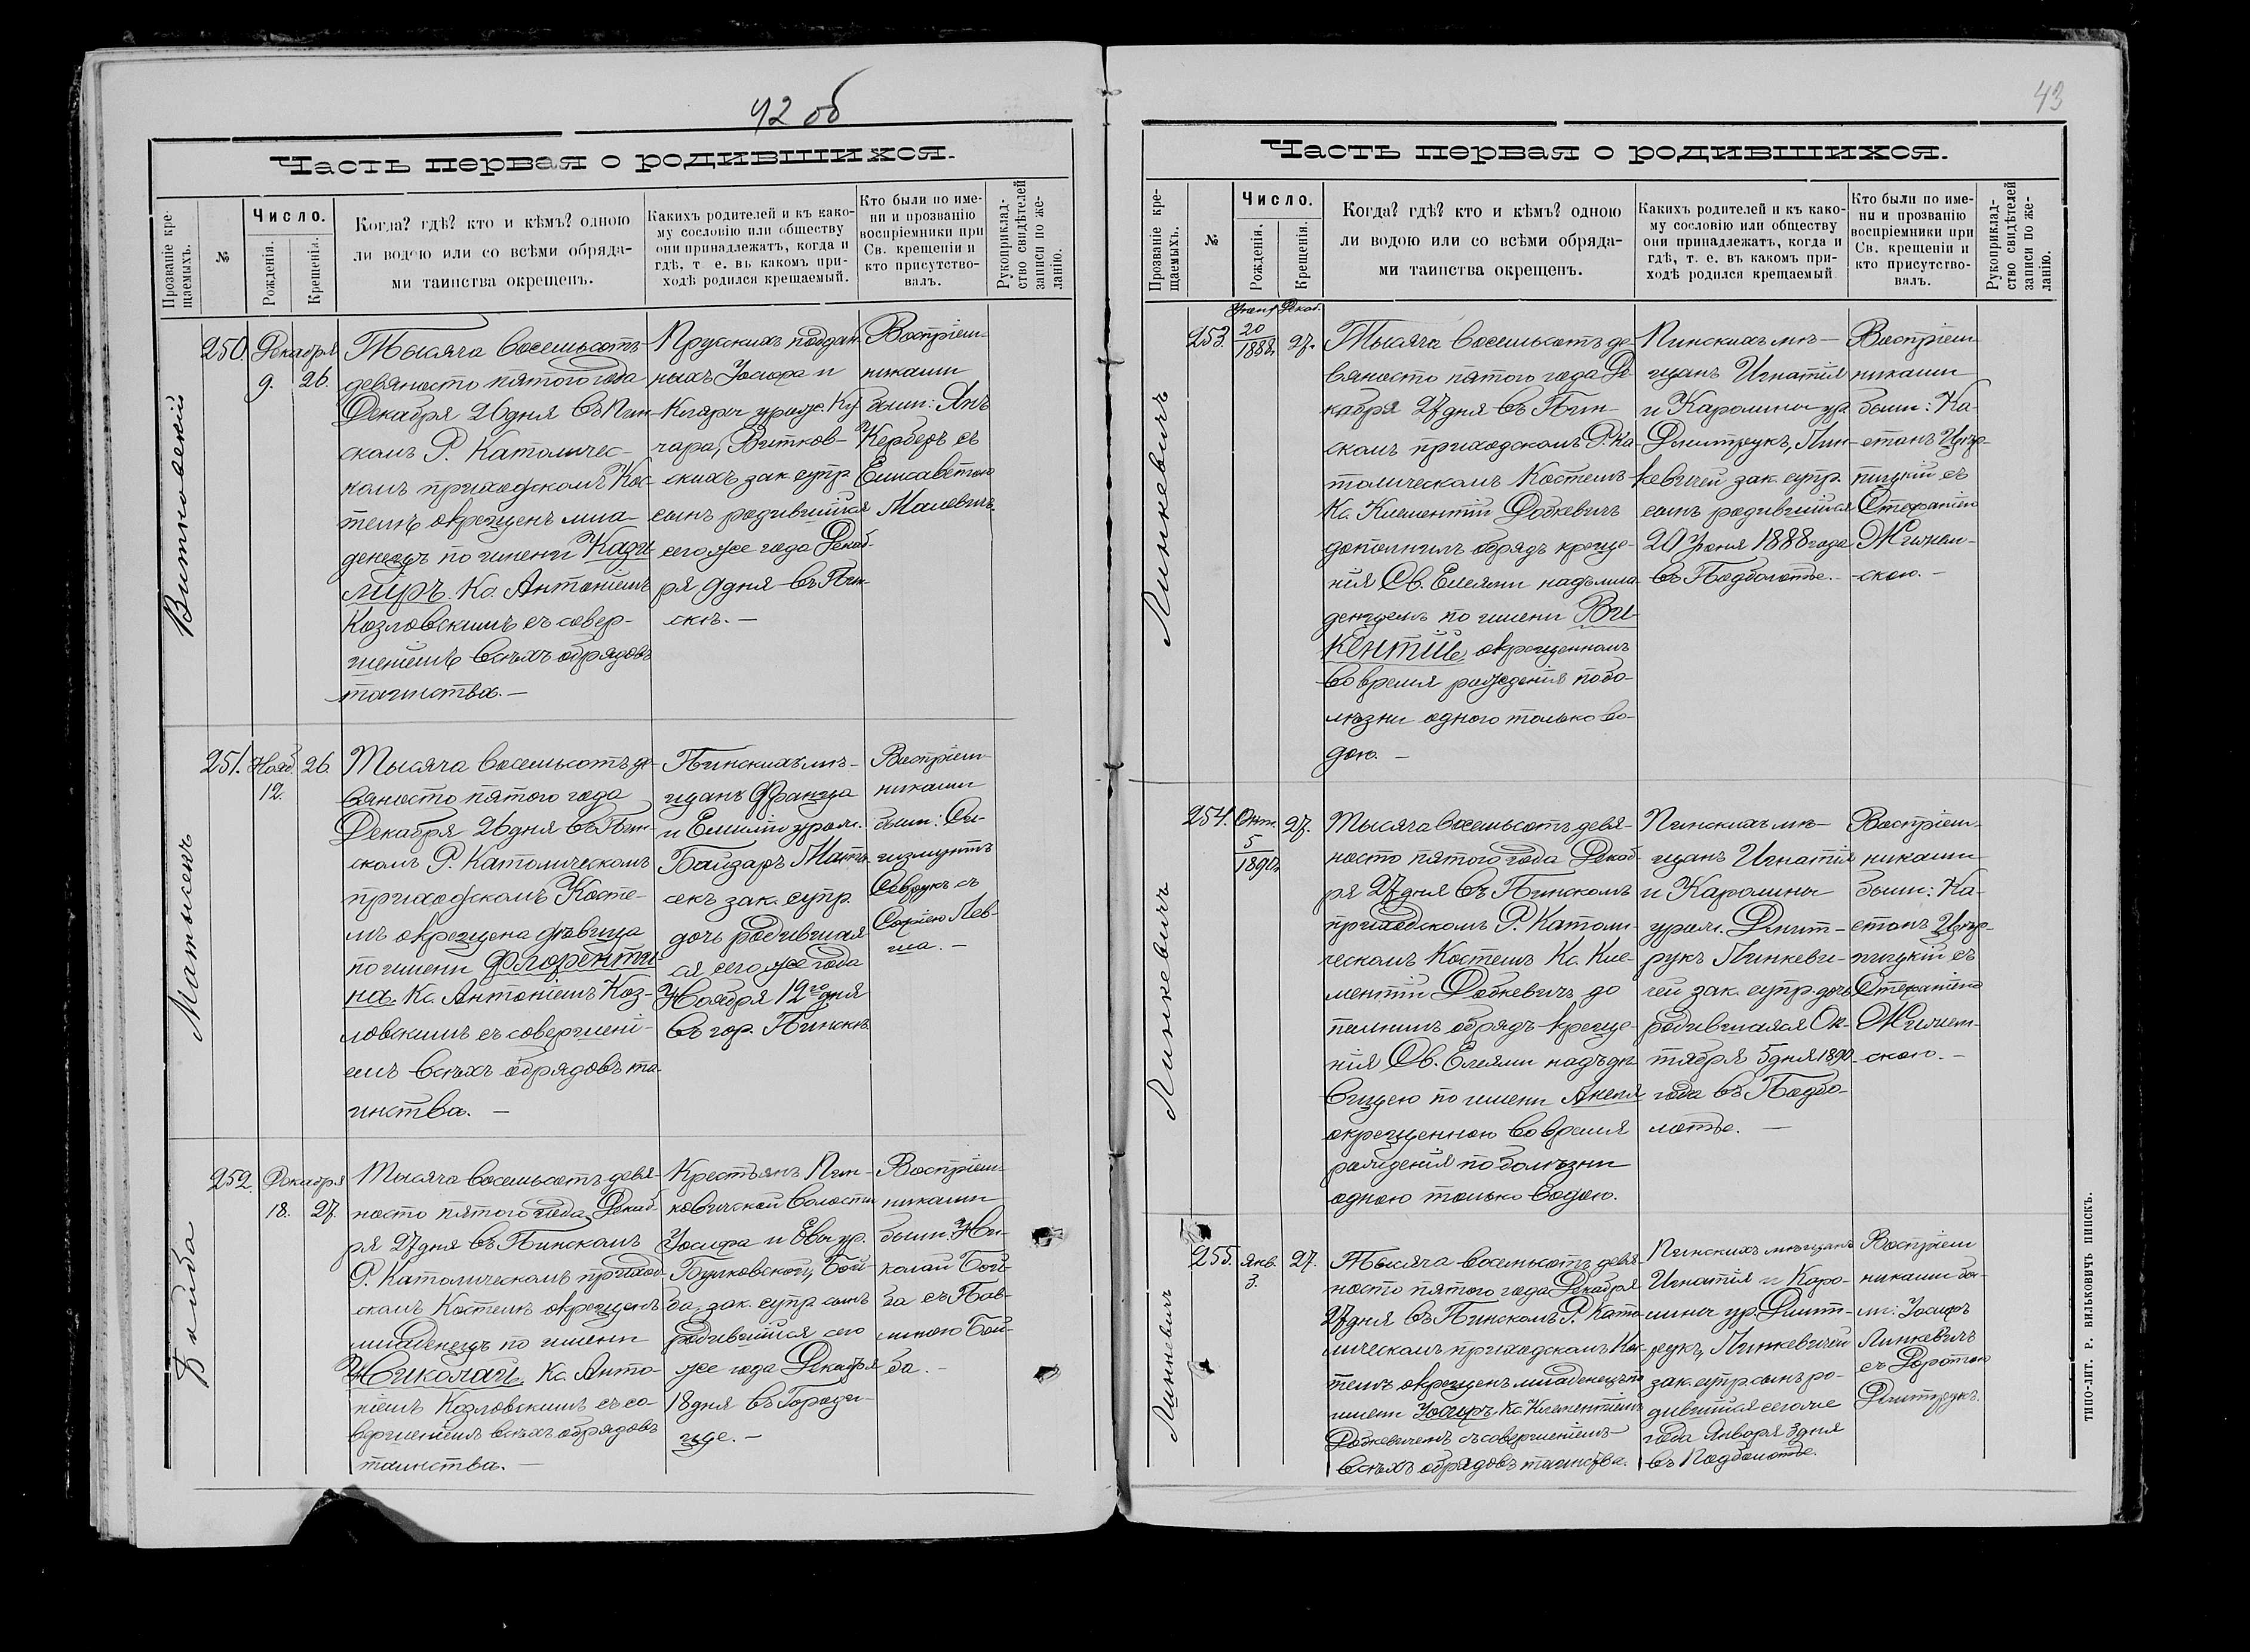 42 об
Часть первая о родившихся.
Прозваніе кре-
щаемыхъ.
№
Число.
Рожденія.
Крещенія.
Когда? гдѣ? кто и кѣмъ? одною
ли водою или со всѣми обряда-
ми таинства окрещенъ.
Какихъ родителей и къ како-
му сословію или обществу
они принадлежатъ, когда и
гдѣ, т. е. въ какомъ при-
ходѣ родился крещаемый.
Кто были по име-
ни и прозванію
воспріемники при
Св. крещеніи и
кто присутство-
валъ.
Рукоприклад-
ство свидѣтелей
записи по же-
ланію.
Витковскій
250.
Декабря
9. 26.
Тысяча восемьсотъ
девяносто пятого года
Декабря 26 дня въ Пин-
скомъ Р. Католичес-
комъ приходскомъ Кос-
телѣ окрещенъ мла-
денецъ по имени Кази-
міръ. Кс. Антоніемъ
Козловскимъ съ совер-
шеніемъ всѣхъ обрядовъ
таинства. —
Прускихъ поддан-
ныхъ Іосифа и
Клары урожд. Ку-
чара, Витков-
скихъ зак. супр.
сынъ родившійся
сего же года Декаб-
ря 9 дня въ Пин-
скѣ. —
Воспріем-
никами
были: Янъ
Керберъ съ
Елисаветою
Малевичъ.
Матысекъ
251.
Нояб.
12.
26.
Тысяча восемьсотъ де-
вяносто пятого года
Декабря 26 дня въ Пин-
скомъ Р. Католическомъ
приходскомъ Косте-
лѣ окрещена дѣвица
по имени Флоренти-
на. Кс. Антоніемъ Коз-
ловскимъ съ совершені-
емъ всѣхъ обрядовъ та-
инства. —
Пинскихъ мѣ-
щанъ Франца
и Емиліи урожд.
Байзаръ Маты-
секъ зак. супр.
дочь родившая
ся сего же года
Ноября 12го дня
въ гор. Пинскѣ.
Воспріем-
никами
были: Си-
гизмунтъ
Саврукъ съ
Софіею Лев-
ша. —
Бойба
252.
Декабря
18. 27.
Тысяча восемьсотъ девя-
носто пятого года Декаб-
ря 27 дня въ Пинскомъ
Р. Католическомъ приход-
скомъ Костелѣ окрещенъ
младенецъ по имени
Николай. Кс. Анто-
ніемъ Козловскимъ съ со-
вершеніемъ всѣхъ обрядовъ
таинства. —
Крестьянъ Пин-
ковичской волости
Іосифа и Евы ур.
Булковской, Бой-
ба, зак. супр. сынъ
родившійся сего
же года Декабря
18 дня въ Городи-
ще. —
Воспріем-
никами
были: Ни-
колай Бой-
ба съ Пав-
линою Бой-
ба. —
43
Часть первая о родившихся.
Прозваніе кре-
щаемыхъ.
№
Число.
Рожденія.
Крещенія.
Когда? гдѣ? кто и кѣмъ? одною
ли водою или со всѣми обряда-
ми таинства окрещенъ.
Какихъ родителей и къ како-
му сословію или обществу
они принадлежатъ, когда и
гдѣ, т. е. въ какомъ при-
ходѣ родился крещаемый
Кто были по име-
ни и прозванію
воспріемники при
Св. крещеніи и
кто присутство-
валъ.
Рукоприклад-
ство свидѣтелей
записи по же-
ланію.
Линкевичъ
253.
20
1888.
Декаб.
27.
Тысяча восемьсотъ де-
вяносто пятого года Де-
кабря 27 дня въ Пин-
скомъ приходскомъ Р. Ка-
толическомъ Костелѣ
Кс. Климентій Добкевичъ
дополнилъ обрядъ креще-
нія Св. Елеями надъ мла-
денцемъ по имени Ви-
кентій, окрещеннымъ
во время рожденія по бо-
лѣзни одного только во-
дою. —
Пинскихъ мѣ-
щанъ Игнатія
и Каролины ур.
Дмитрукъ, Лин-
кевичей зак. супр.
сынъ родившійся
20 Іюня 1888 года
въ Подболотье. —
Воспріем-
никами
были: Ка-
етанъ
съ
Стефаніею
скою. —
Линкевичъ
254.
Окт.
5
1890.
27.
Тысяча восемьсотъ девя-
носто пятого года Декаб-
ря 27 дня въ Пинскомъ
приходскомъ Р. Католи-
ческомъ Костелѣ Кс. Кли-
ментій Добкевичъ до
полнилъ обрядъ креще-
нія Св. Елеями надъ дѣ-
вицею по имени Анеля
окрещенною во время
рожденія по болѣзни
одною только водою.
Пинскихъ мѣ-
щанъ Игнатія
и Каролины
урожд. Дмит-
рукъ Линкеви-
чей зак. супр. дочь
родившаяся Ок-
тября 5 дня 1890
года въ Подбо-
лотье. —
Воспріем-
никами
были: Ка-
етанъ
съ
Стефаніею
скою. —
Линкевичъ
255.
Янв.
3.
27.
Тысяча восемьсотъ девя-
носто пятого года Декабря
27 дня въ Пинскомъ Р. Като-
лическомъ приходскомъ Кос-
телѣ окрещенъ младенецъ по
имени Іосифъ. Кс. Климентіемъ
Добкевичемъ съ совершеніемъ
всѣхъ обрядовъ таинства.
Пинскихъ мѣщанъ
Игнатія и Каро-
лины ур. Дмит-
рукъ, Линкевичей
зак. супр. сынъ ро-
дившійся сего же
года Января 3 дня
въ Подболотье.
Воспріем
никами бы-
ли: Іосифъ
Линкевичъ
съ Доротою
Дмитрукъ.
ТИПО-ЛИТ. Р. ВИЛЬКОВИЧЪ ПИНСКЪ.